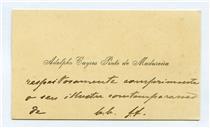 Adolpho Cayres Pinto de Madureira
respeitosamente comprimenta
o seu illustre contemporaneo
de